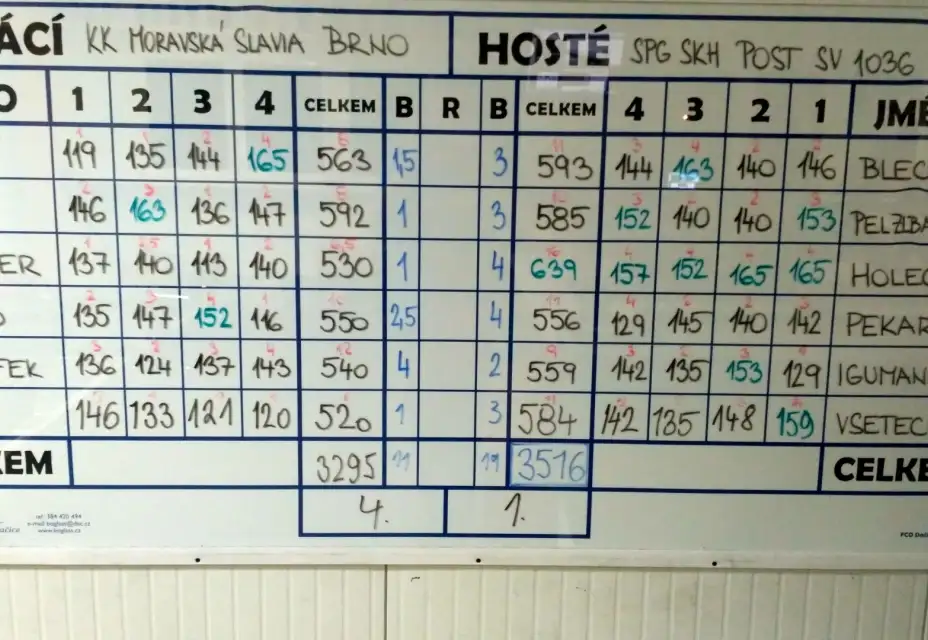 ÁCÍ KK MORAVSKÁ SLAVIA BRNO HOSTÉ SPG SKH POST SV 1036
O 1 2 3 4 CELKEM B R B CELKEM 4 3 2 1 JMÉ
119 135 144 165 563 1,5 3 593 144 163 140 146 BLEC
146 163 136 147 592 1 3 585 152 140 140 153 PELZLBA
ER 137 140 113 140 530 1 4 639 157 152 165 165 HOLEC
135 147 152 116 550 2,5 4 556 129 145 140 142 PEKAR
FEK 136 124 137 143 540 4 2 559 142 135 153 129 IGUMAN
146 133 121 120 520 1 3 584 142 135 148 159 VSETEC
KEM 3295 11 19 3516 CELKE
4. 1.